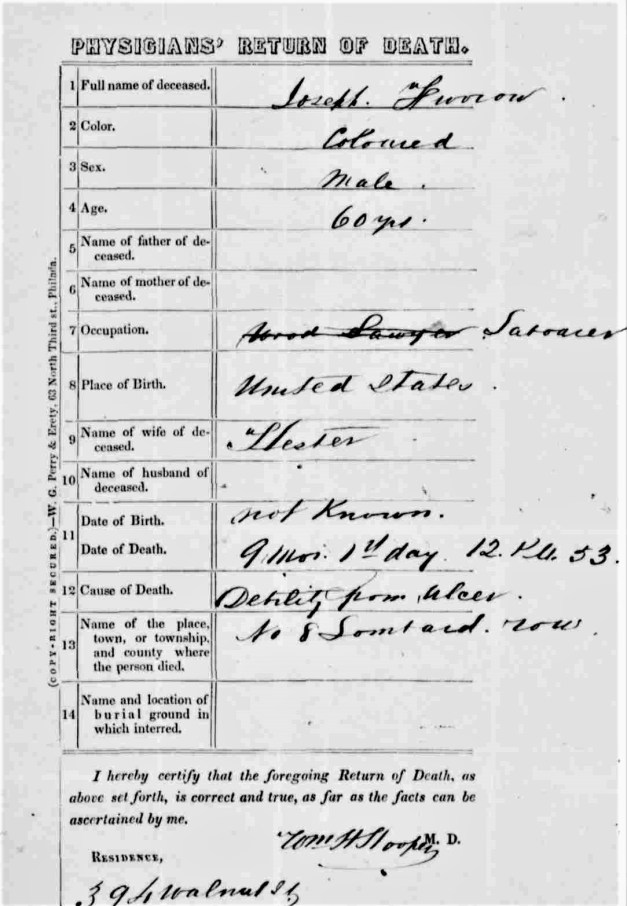 PHYSICIANS' RETURN OF DEATH.
1 Full name of deceased. Joseph.
2 Color. Coloured
3 Sex. Male.
4 Age. 60 yrs.
5 Name of father of de-
ceased.
6 Name of mother of de-
ceased.
7 Occupation. Wood Sawyer Labourer
8 Place of Birth. United States.
9 Name of wife of de-
ceased. Hester
10 Name of husband of
deceased.
11 Date of Birth. not Known.
Date of Death. 9 Mo. 1st day. 12. 53.
12 Cause of Death. Debility from Ulcer.
13 Name of the place,
town, or township,
and county where
the person died. No 8 Lombard. row
14 Name and location of
burial ground in
which interred.
I hereby certify that the foregoing Return of Death, as
above set forth, is correct and true, as far as the facts can be
ascertained by me.
Wm H Hooper M. D.
RESIDENCE,
394 Walnut St
(COPY-RIGHT SECURED.)—W. G. Perry & Erety, 63 North Third st., Philada.